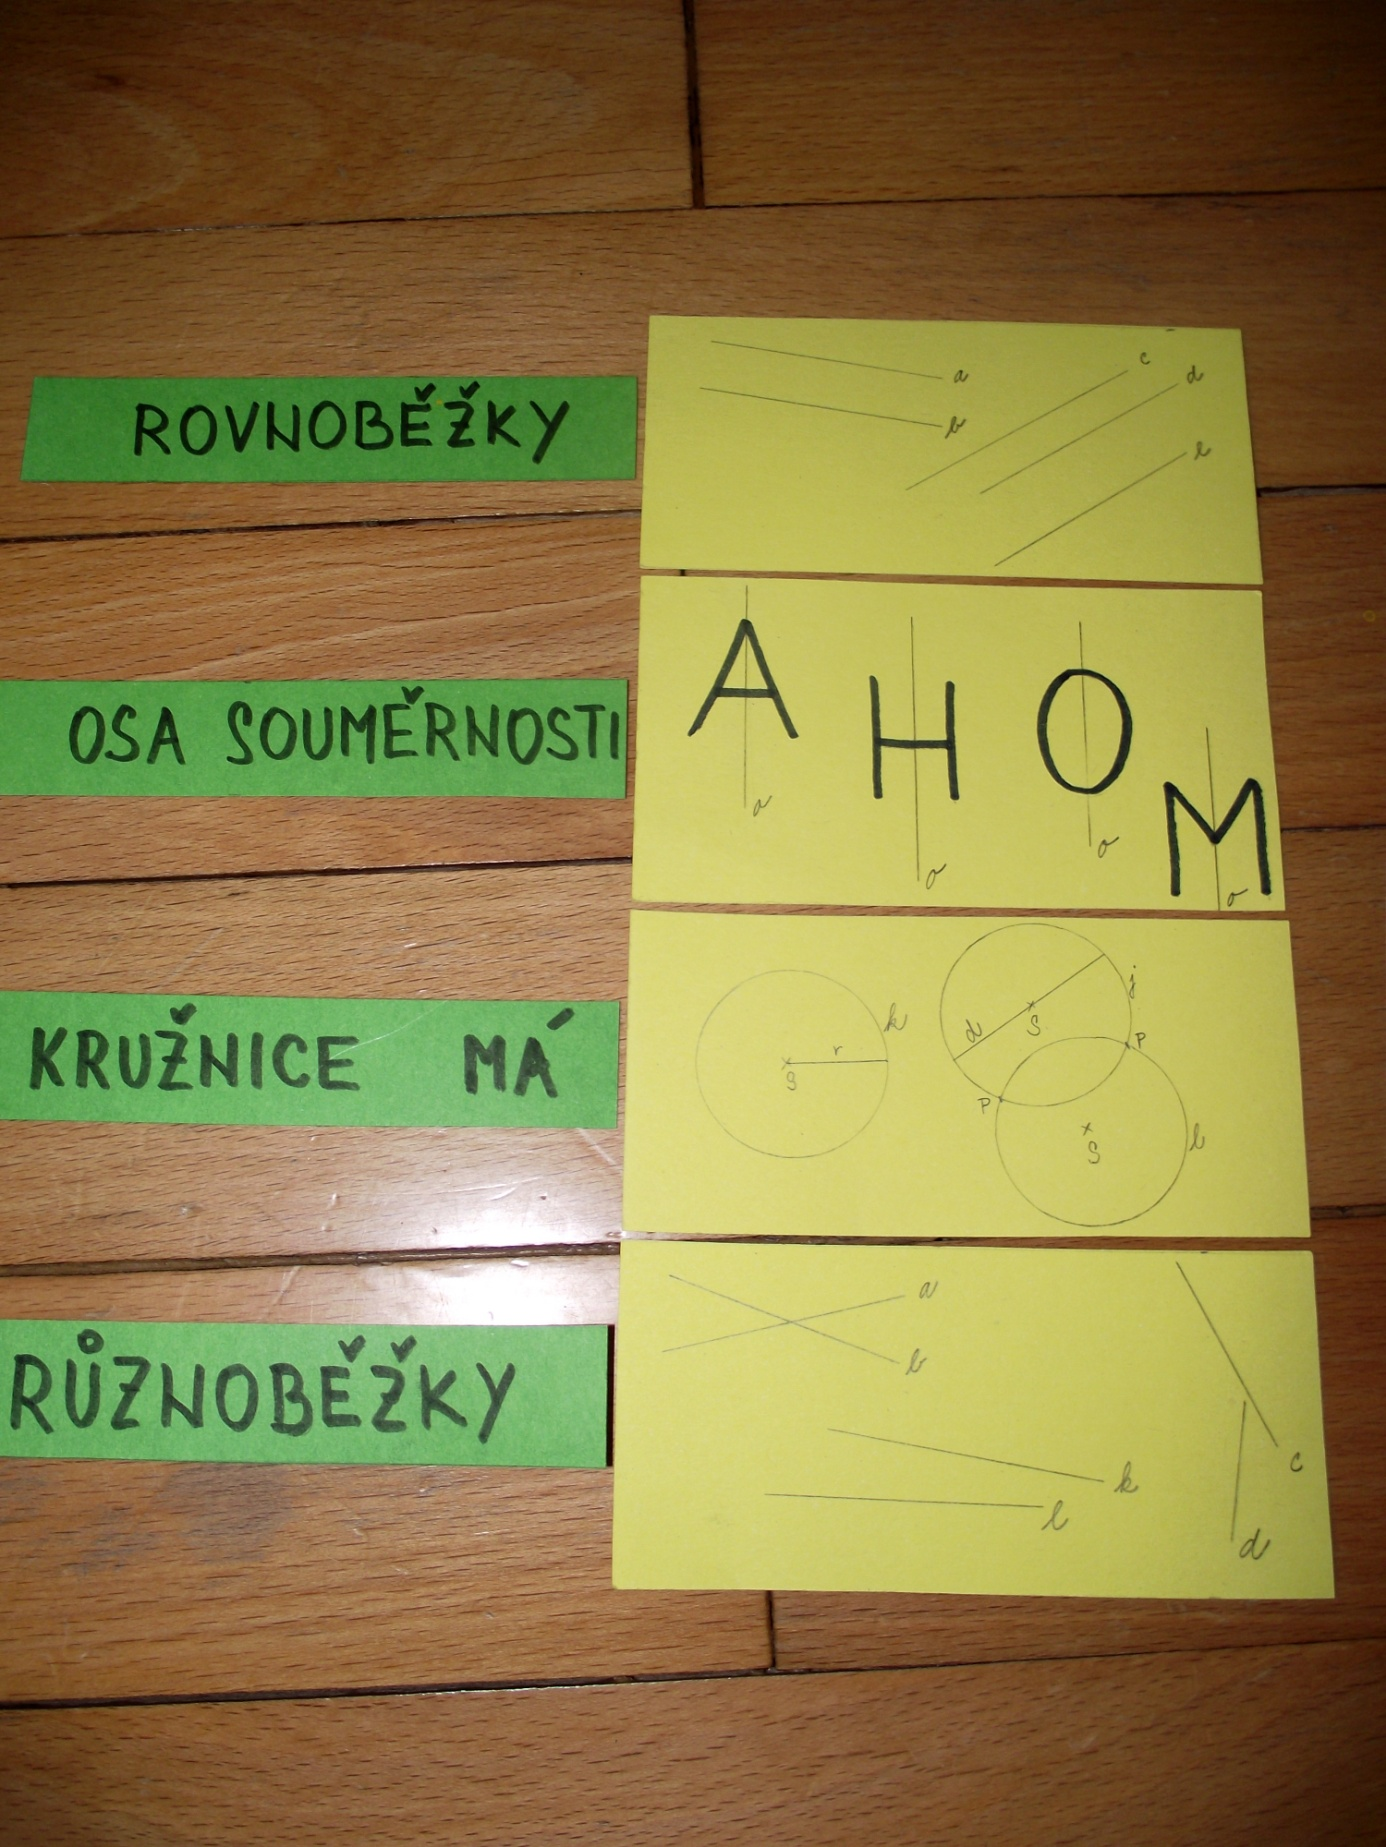 ROVNOBĚŽKY
a
b
c
d
e
OSA SOUMĚRNOSTI
A H O M
o
o
o
o
KRUŽNICE MÁ
k
r
S
d
S
j
P
P
S
l
RŮZNOBĚŽKY
a
b
c
k
l
d